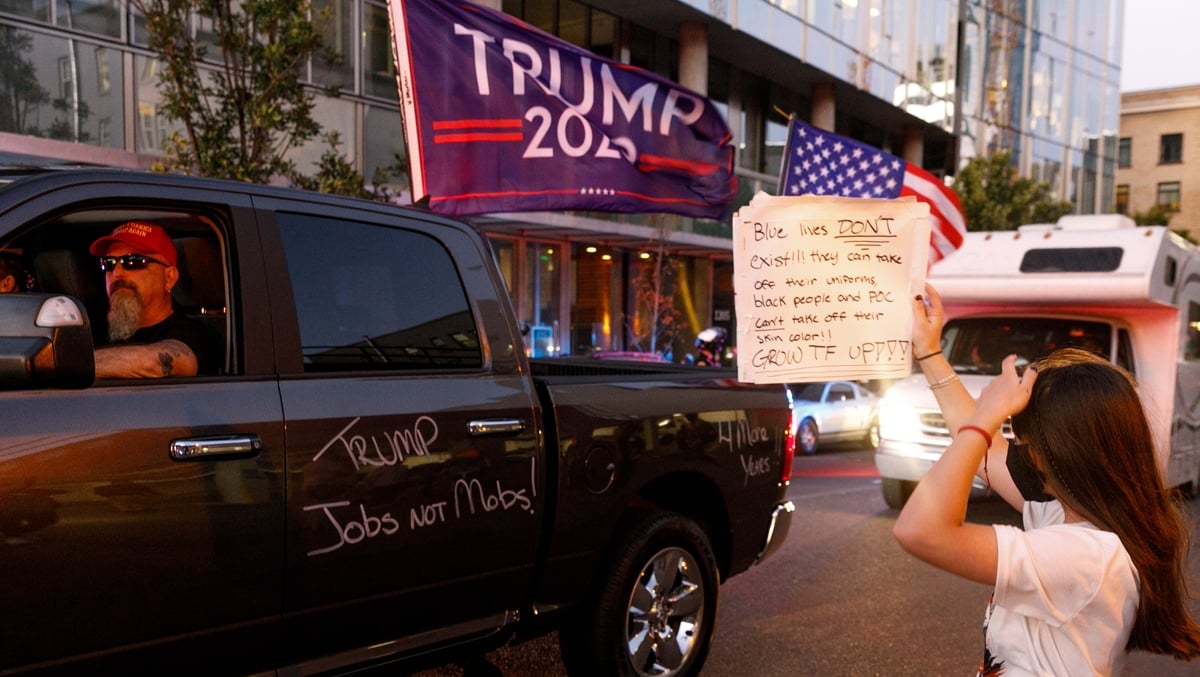 TRUMP
202
Blue lives DON'T
exist!!! they can take
off their uniforms,
black people and POC
can't take off their
skin color!!
GROW TF UP!!!!
TRUMP
Jobs NOT Mobs!
4 More
Years !!